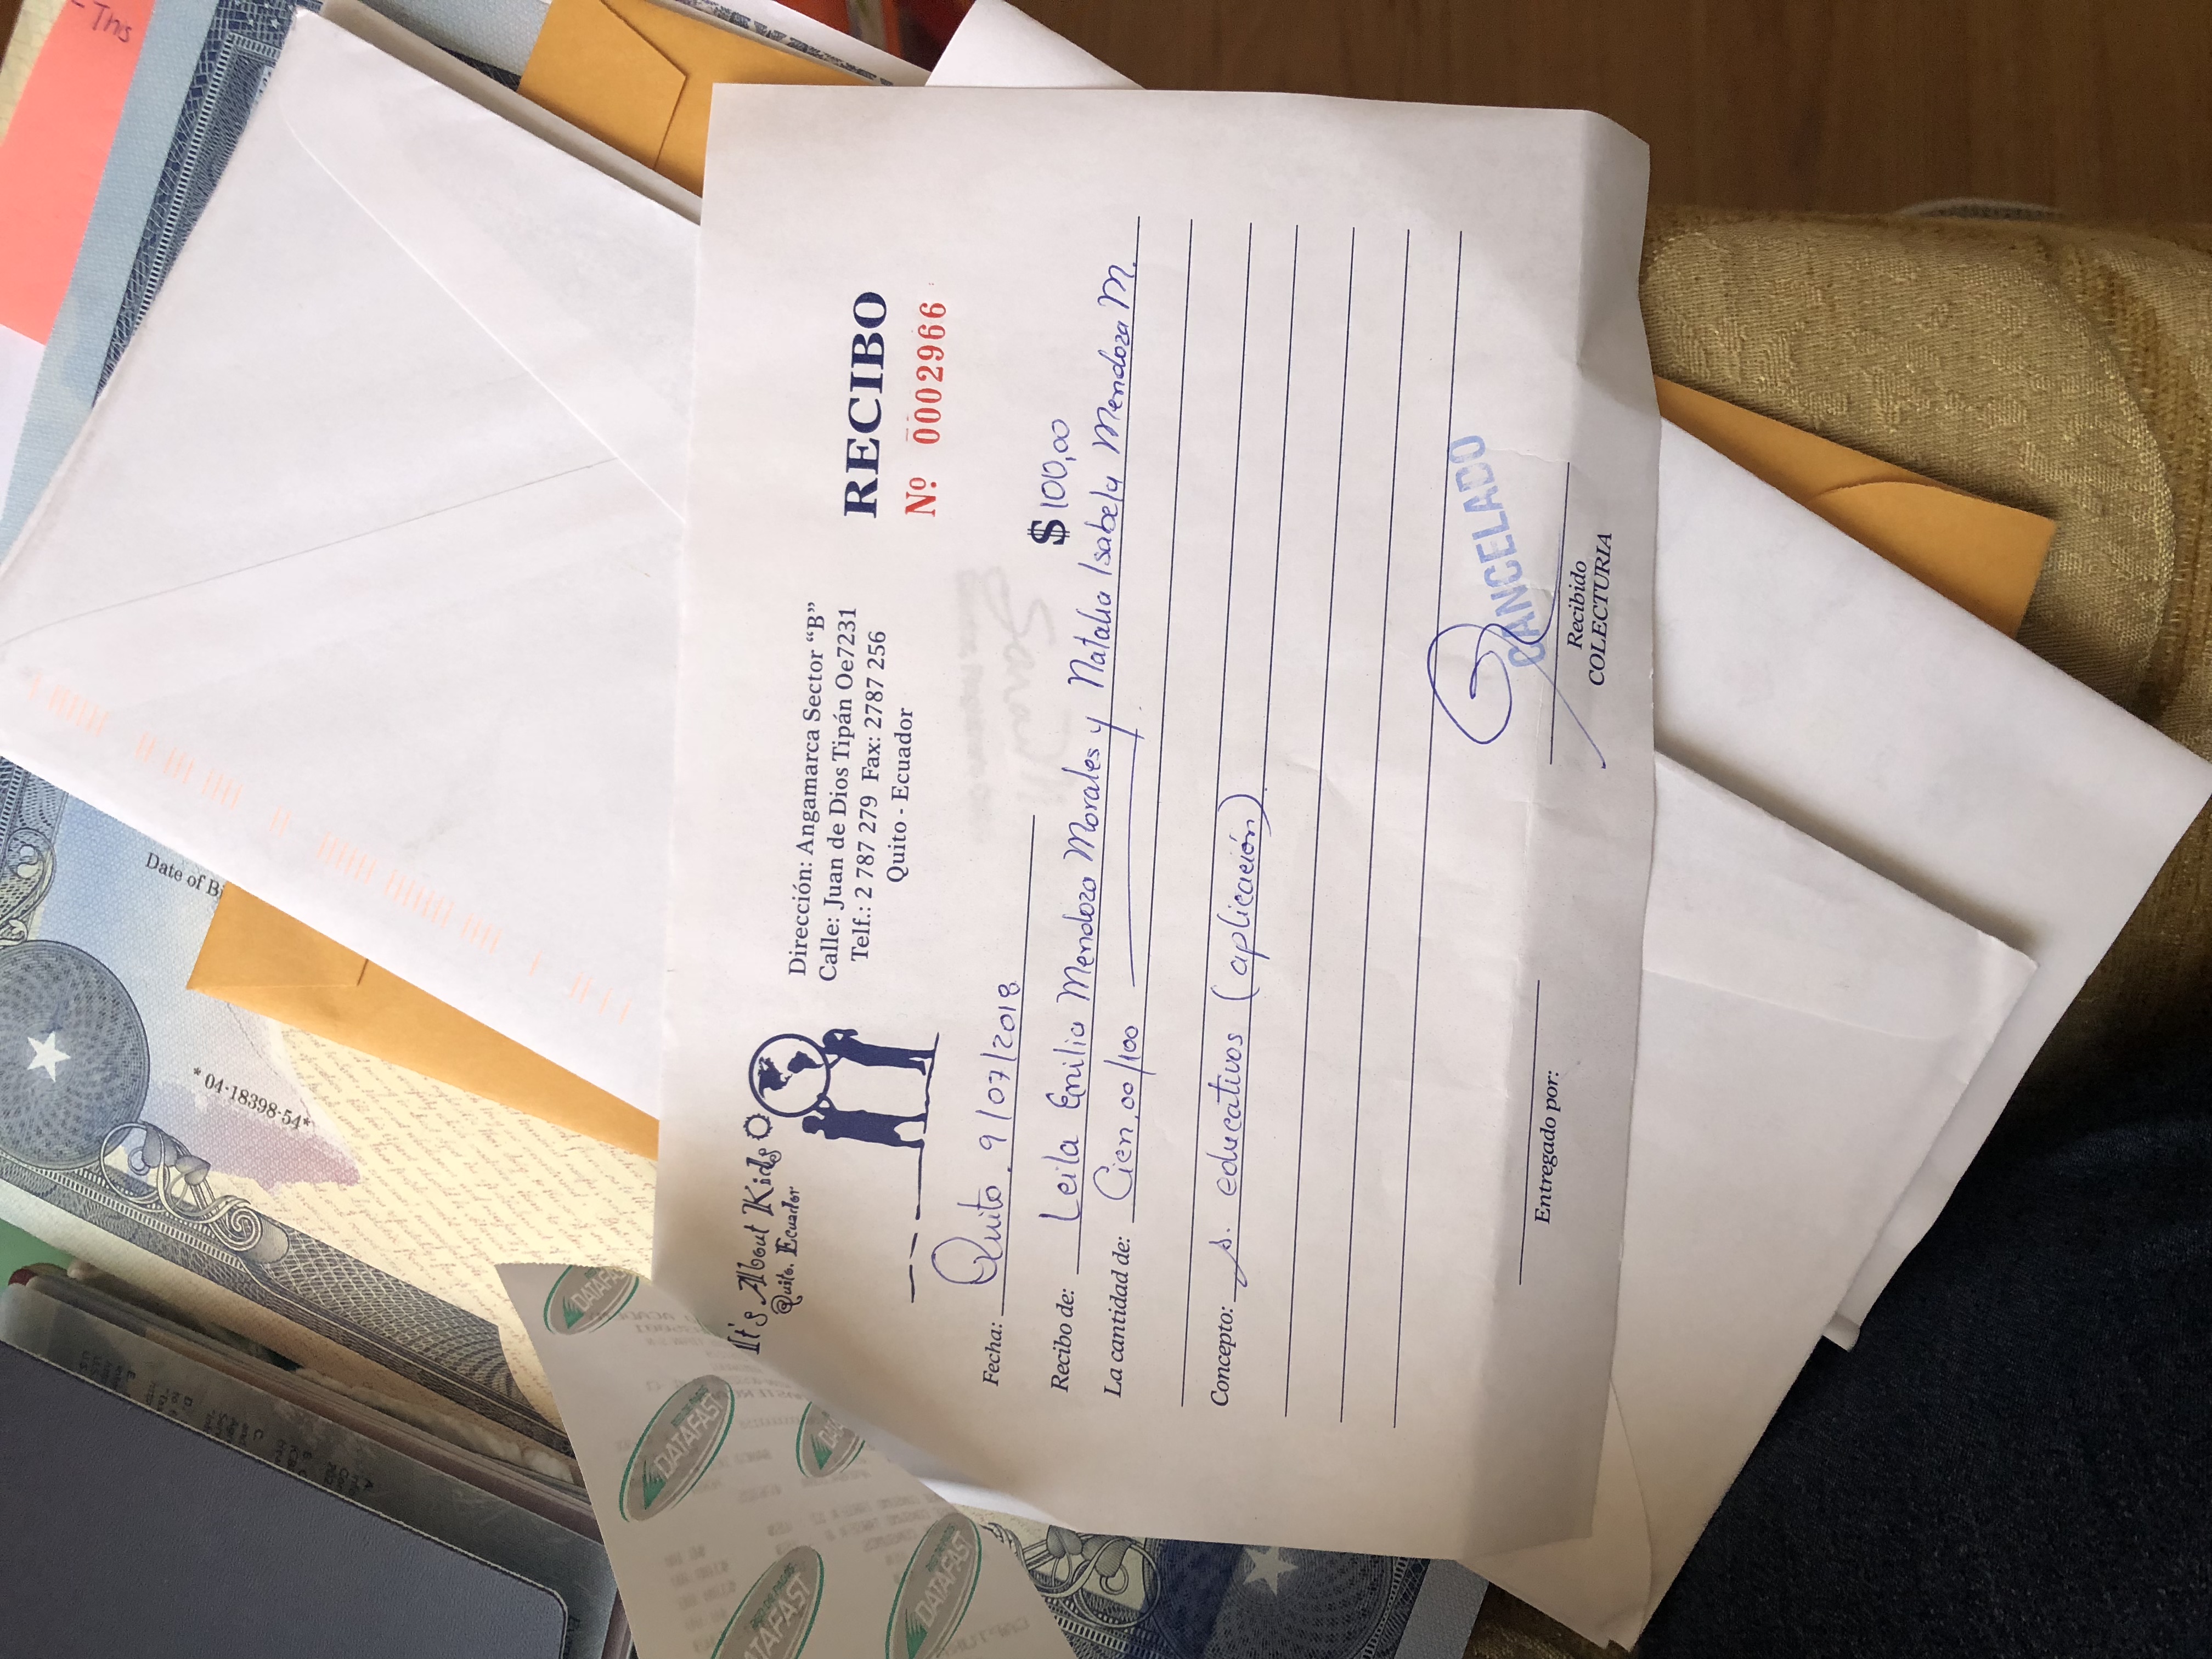 Date of B
*04-18398-54*
Ths
DATAFAST
DATAFAST
DATAFAST
DATAFAST
It's About Kids
Quito, Ecuador
Dirección: Angamarca Sector “B”
Calle: Juan de Dios Tipán Oe7231
Telf.: 2 787 279 Fax: 2787 256
Quito - Ecuador
RECIBO
Nº 0002966
Fecha: Quito, 9/07/2018
$ 100,00
Recibo de: Leila Emilia Mendoza Morales y Natalia Isabela Mendoza M.
La cantidad de: Cien, 00/100
Concepto: s. educativos (aplicación).
CANCELADO
Entregado por:
Recibido
COLECTURIA